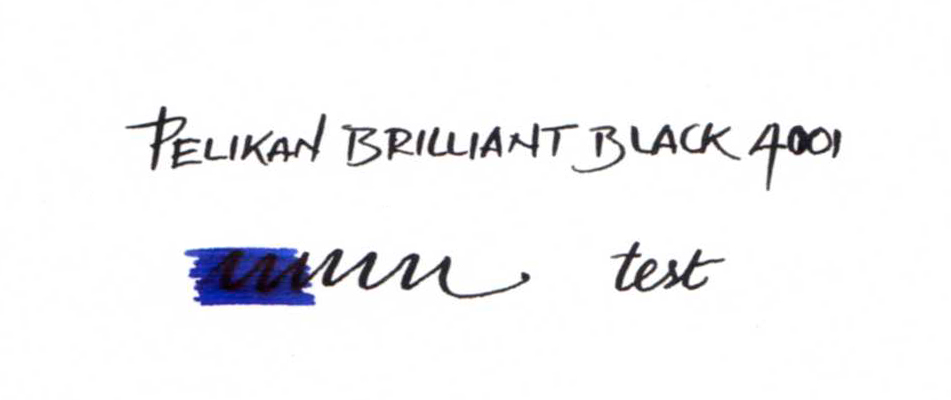 PELIKAN BRILLIANT BLACK 4001
test